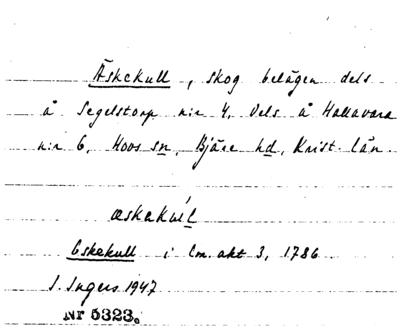 Äskekull, skog belägen dels
å Segelstorp n:r 4, dels å Hallavara
n:r 6, Hoos sn, Bjäre hd, Krist. län
æskakul
Eskekull i Lm. akt 3, 1786
I. Ingers 1947
Nr 5323.